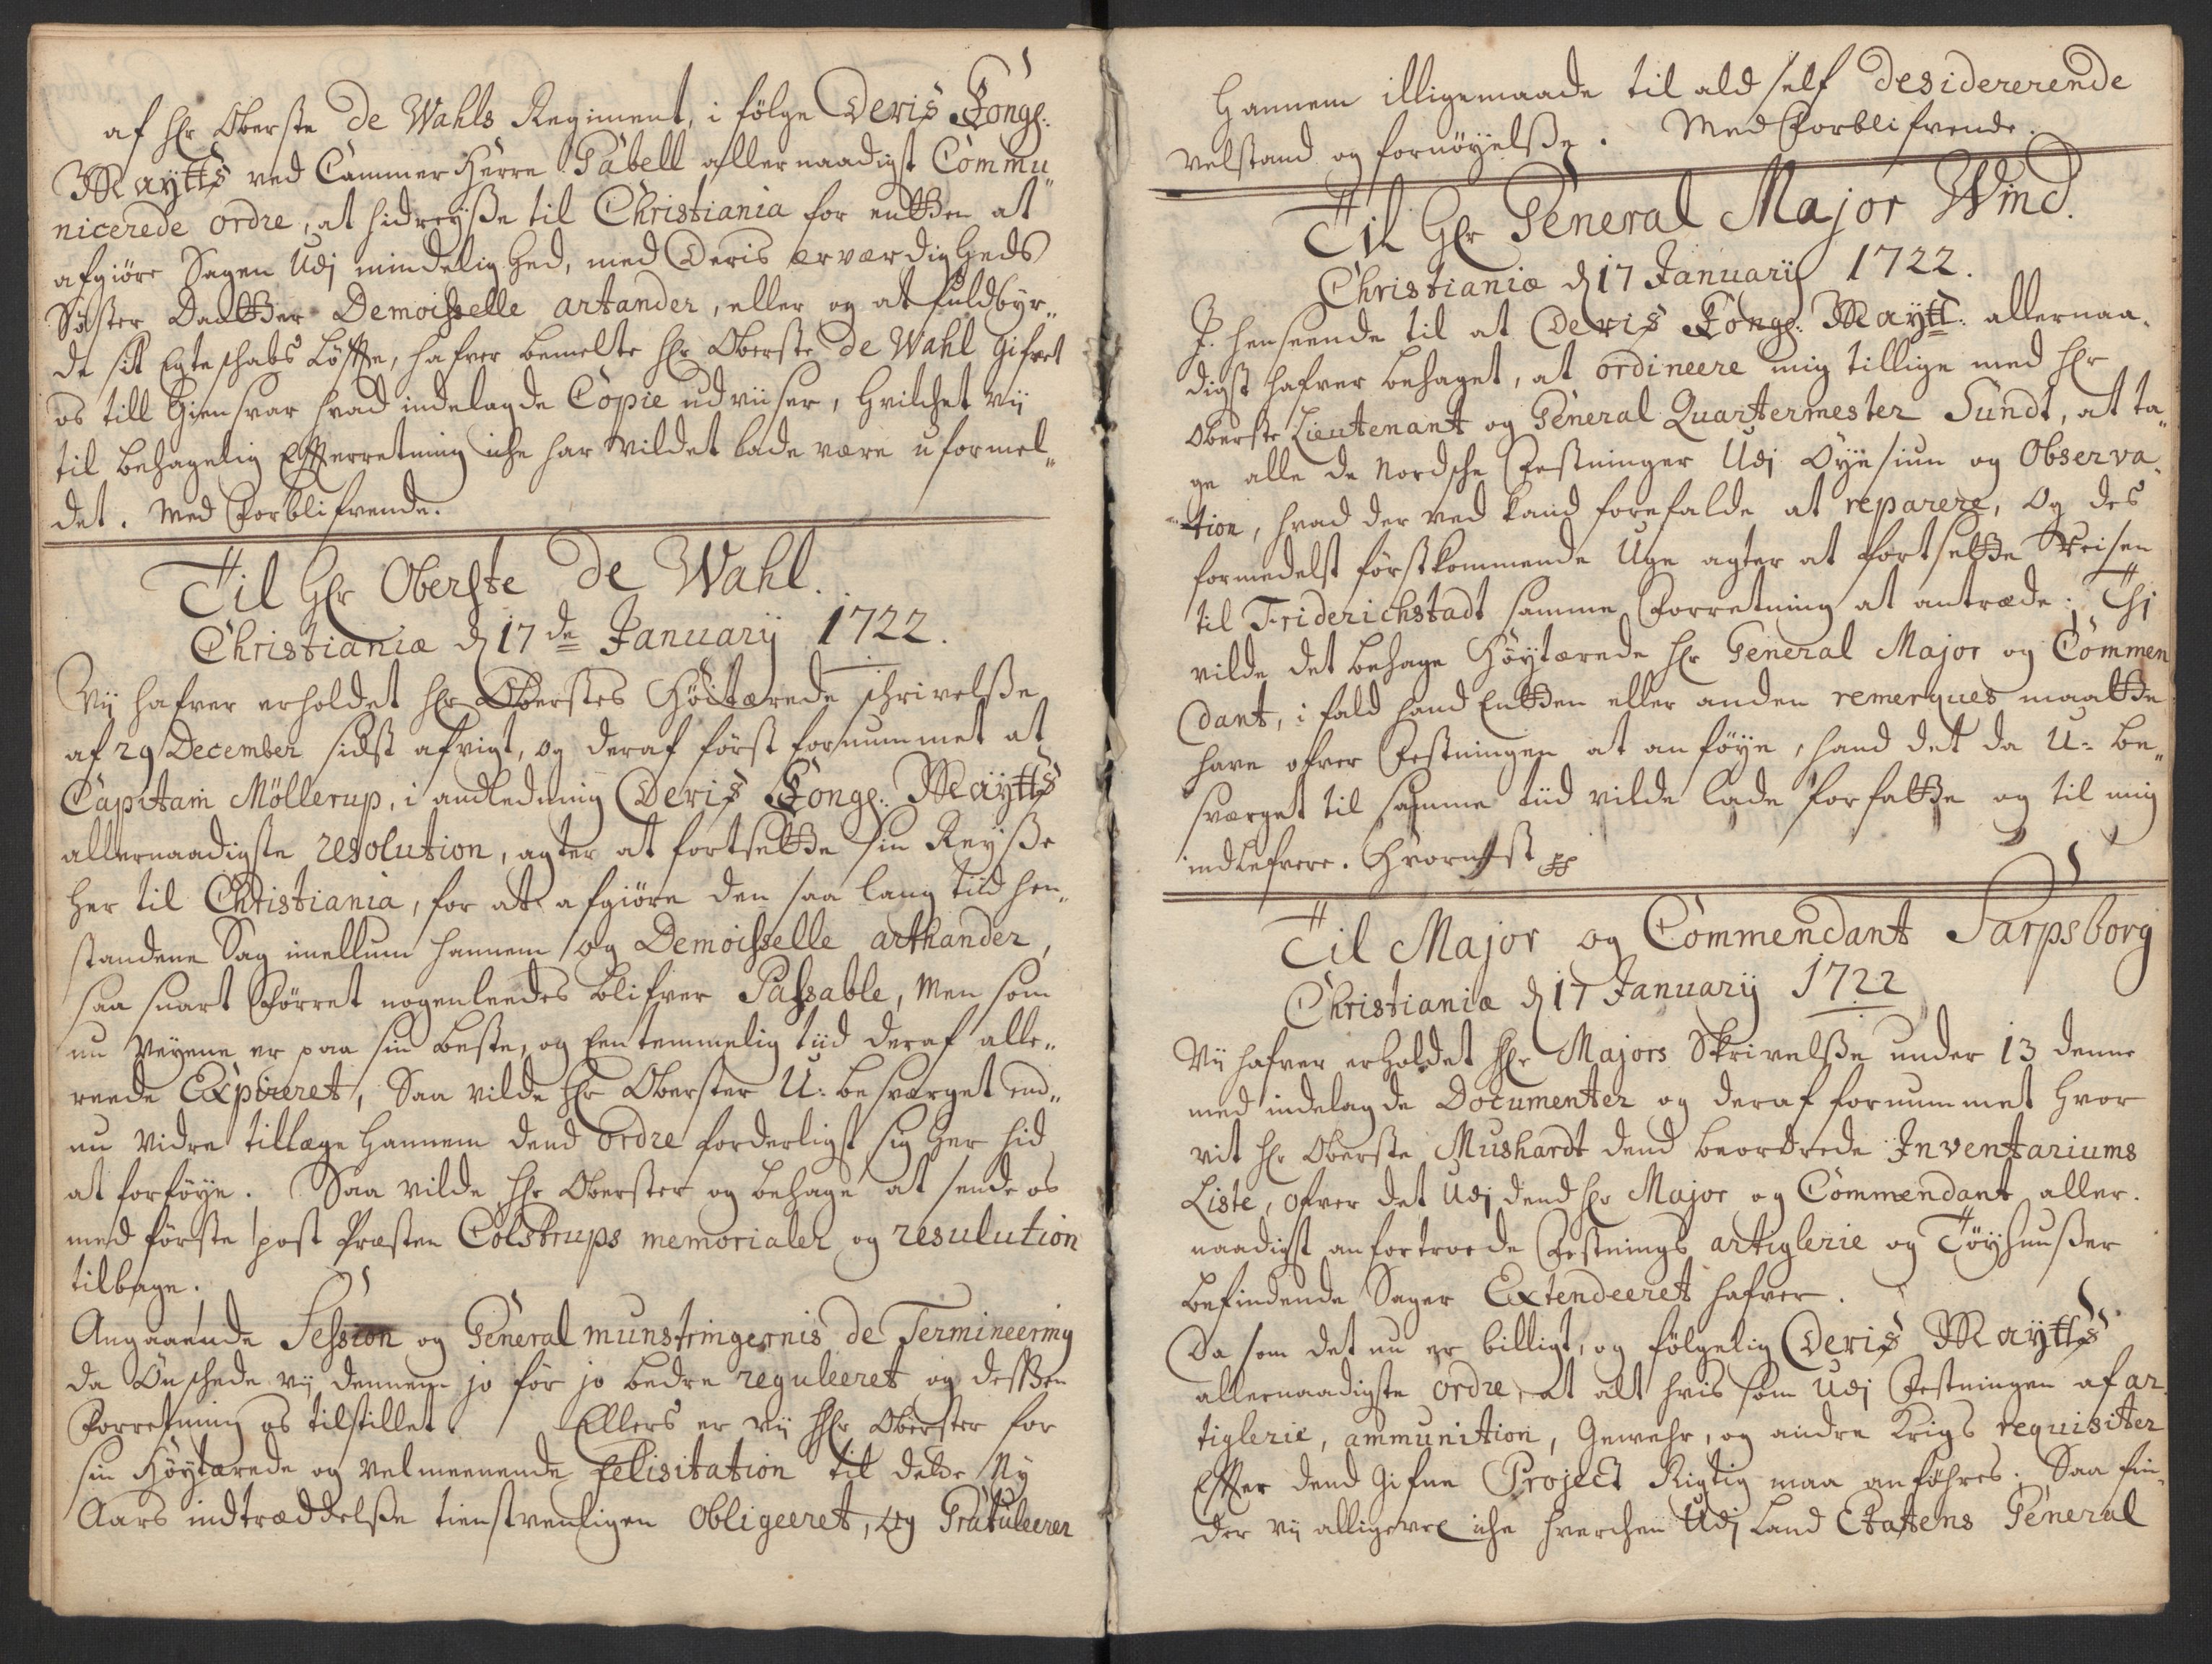 af Hr Oberste de Wahls Regiment, i følge Deris Kongl:
Maytts ved Cammer Herre Gabell allernaadigst Commu„
nicerede ordre, at hidreyse til Christiania for entten at
afgiöre Sagen Udj mindelig hed, med Deris ærværdig heds
Søster Daatter Demoisselle artander, eller og at fuldbyr„
de sit Egteschabs Løffte, hafver bemelte Hr Oberste de Wahl gifvet
os till giensvar hvad indelagde Copie udviiser, hvilchet vij
til behagelig Effterretning iche har vildet lade være uformel„
det. Med Forblifvende.
Til Hr Oberste de Wahl.
Christianiæ d 17de Januarij 1722.
Vij hafver erholdet Hr Oberstes Höitærede schrivelße
af 29 December sidst afvigt, og deraf först fornummet at
Capitain Möllerup, i anledning Deris Kongl: Maytts
allernaadigste resolution, agter at fortsætte sin Reyße
her til Christiania, for at afgiöre den saa lang tiid hen„
standene Sag imellum hannem og Demoisselle arthander,
saa snart Förret nogenleedes blifver Passable, Men som
nu Veyene er paa sin beste, og Een temmelig tiid deraf alle„
reede Expireret, Saa vilde Hr Oberster U: besværget end„
nu vidre tillæge hannem dend ordre forderligst sig her hid
at forföye. Saa vilde Hr Oberster og behage at sende os
med förste post Præsten Colstrups memorialer og resulution
tilbage.
Angaaende Session og General munstringernis de Termineering
da Önschede vij dennem jo för jo bedre reguleeret og deßen
Forretning os tilstillet. Ellers er vij Hr Oberster for
sin Höytærede og velmeenende felisitation til dette Ny
Aars indtræddelße tienstvenligen obligeeret, og Gratuleerer
hannem illigemaade til ald self desidererende
velstand og fornöyelße. Med Forblifvende.
Til Hr General Major Wind.
Christianiæ d 17 Januarij 1722.
I henseende til at Deris Kongl: Maytt: allernaa„
digst hafver behaget, at ordineere mig tillige med Hr
Oberste Lieutenant og General Quartermester Sundt, at ta„
ge alle de Nordsche Festninger Udj Öyesiun og Observa„
tion, hvad der ved kand forefalde at reparere, og des
formedelst förstkommende Uge agter at fortsette Reisen
til Friderichstadt samme Forretning at antræde; Thi
vilde det behage Höytærede Hr General Major og Commen
dant, i fald hand Entten eller anden remerques maatte
have ofver Festningen at anföye, hand det da U: be„
sværget til samme tiid vilde lade forfatte og til mig
indlefvere. Hvornest
Til Major og Commendant Sarpsborg
Christianiæ d 17 Januarij 1722
Vij hafver erholdet Hr Majors Skrivelße under 13 denne
med indelagde Documenter og deraf fornummet hvor
vit Hr Oberste Mushardt dend beordrede Inventariums
Liste, ofver det Udj dend Hr Major og Commendant aller„
naadigst anfortroede Festnings artiglerie og Töyhuußer
befindende Sager Extendeeret hafver.
Da som det nu er billigt, og fölgelig Deris Maytts
allernaadigste ordre, at alt hvis som Udj Festningen af ar„
tiglerie, ammunition, Gewehr, og andre Krigs requisiter
Effter dend gifne Project Rigtig maa anföhres; Saa fin„
der vij alligevel iche hverchen Udj Land Etattens General